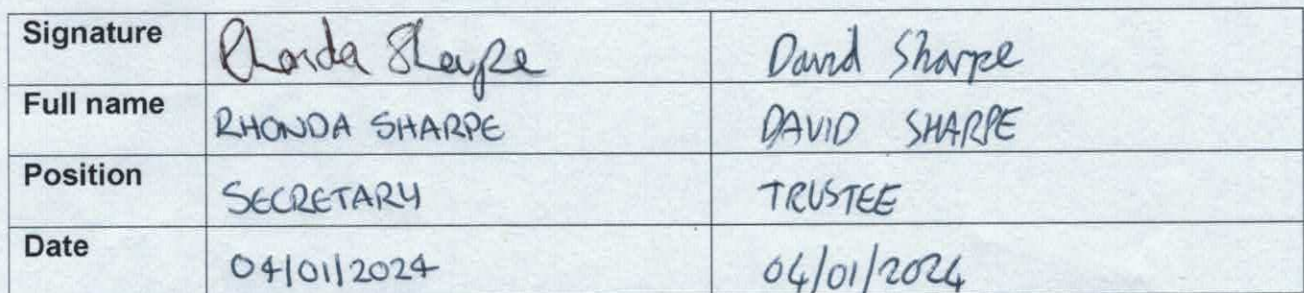 Signature Rhonda Sharpe David Sharpe
Full name RHONDA SHARPE DAVID SHARPE
Position SECRETARY TRUSTEE
Date 04/01/2024 04/01/2024